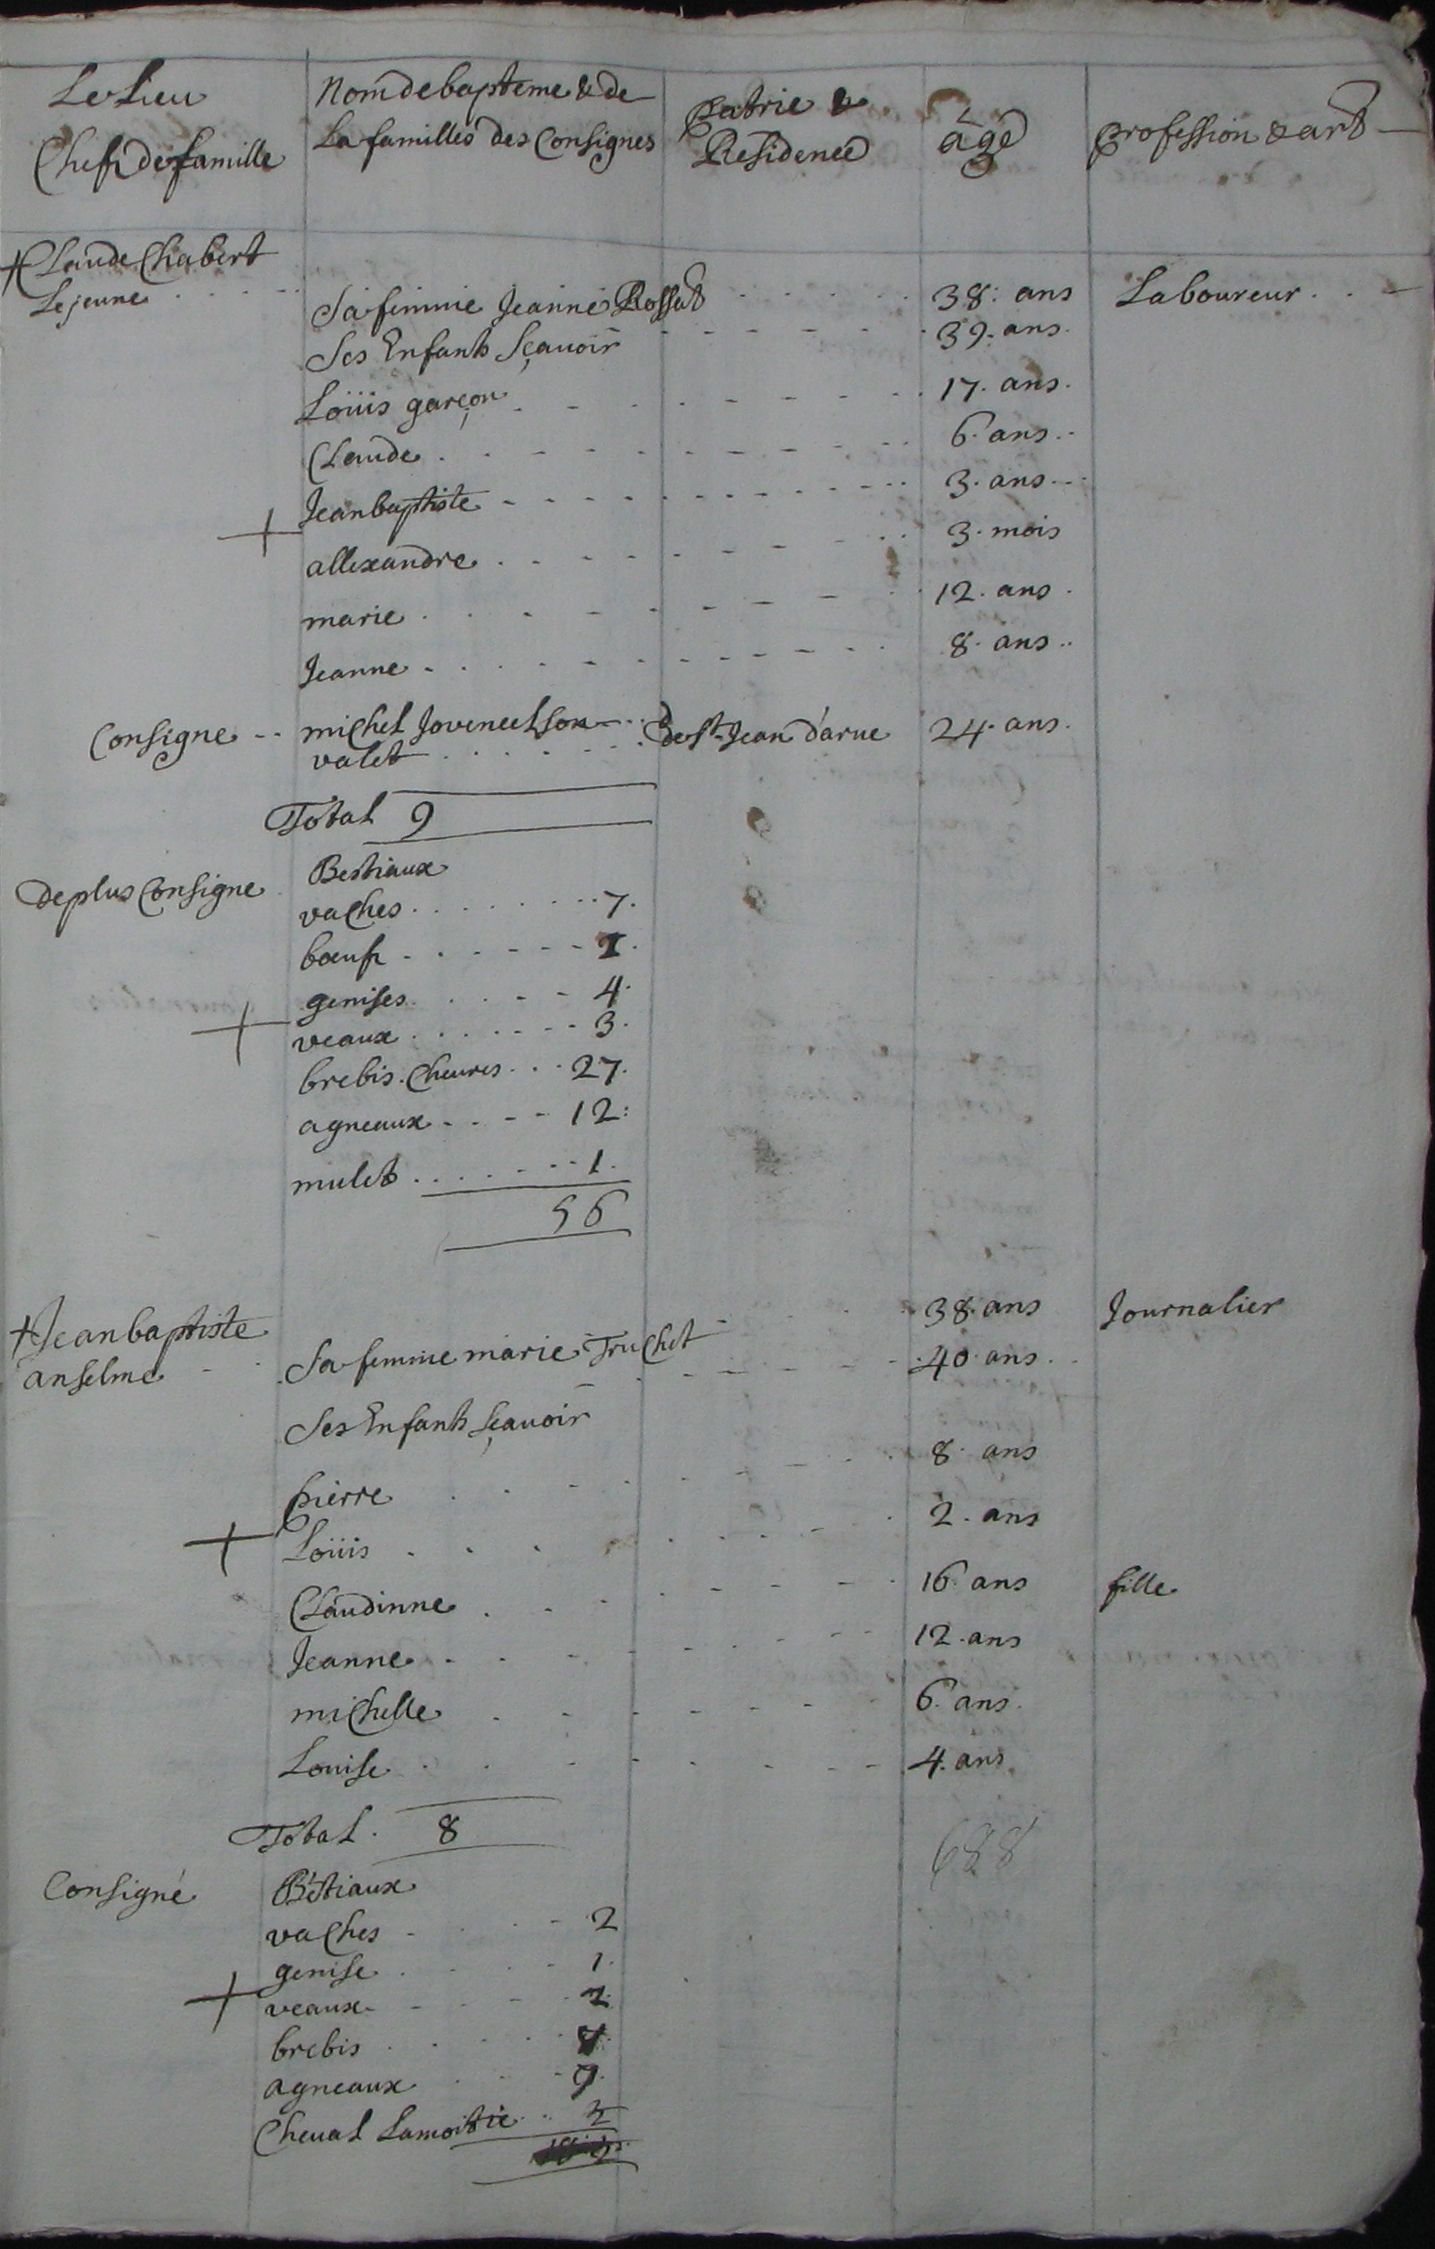 Le Lieu
Chefs de famille
Nom de bapteme & de
La familles des Consignes
patrie &
Residence
âge
profession & art
+ Claude Chabert
Le jeune 38. ans Laboureur
Sa femme Jeanne Rossat 39. ans
Ses Enfants Sçavoir
Loüis garçon 17. ans
Claude 6. ans
Jean baptiste 3. ans
+
allexandre 3. mois
marie 12. ans
Jeanne 8. ans
Consigne michel Jovenet son de St Jean d'arue 24. ans
valet
Total 9
Bestiaux
de plus Consigne
vaches 7.
bœufs
genises 4.
+
veaux 3.
brebis. Cheures 27.
agneaux 12:
mulet 1.
56
+ Jean baptiste 38. ans Journalier
anselme
Sa femme marie Truchet 40. ans
Ses Enfants Sçavoir
pierre 8. ans
+
Loüis 2. ans
Claudinne 16. ans fille
Jeanne 12. ans
michelle 6. ans
Louise 4. ans
Total 8
688
Consigné Béstiaux
vaches 2
genise 1.
+
veaux
brebis
agneaux
Cheual Lamoitie